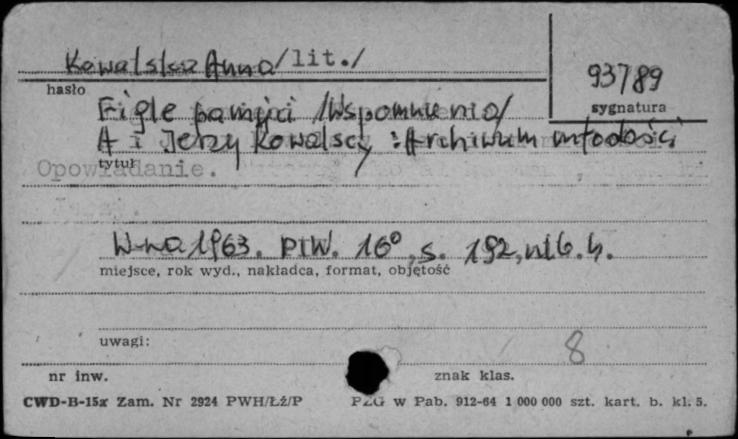 Kowalska Anna /lit./
hasło
93789
sygnatura
Figle pamięci /Wspomnienia/
A i Jerzy Kowalscy: Archiwum młodości
tytuł
Opowiadanie.
W-wa 1963. PIW. 16°, s. 192, nlb. 4.
miejsce, rok wyd., nakładca, format, objętość
uwagi:
8
nr inw.
znak klas.
CWD-B-15x Zam. Nr 2924 PWH/Łź/P
PZG w Pab. 912-64 1 000 000 szt. kart. b. kl. 5.